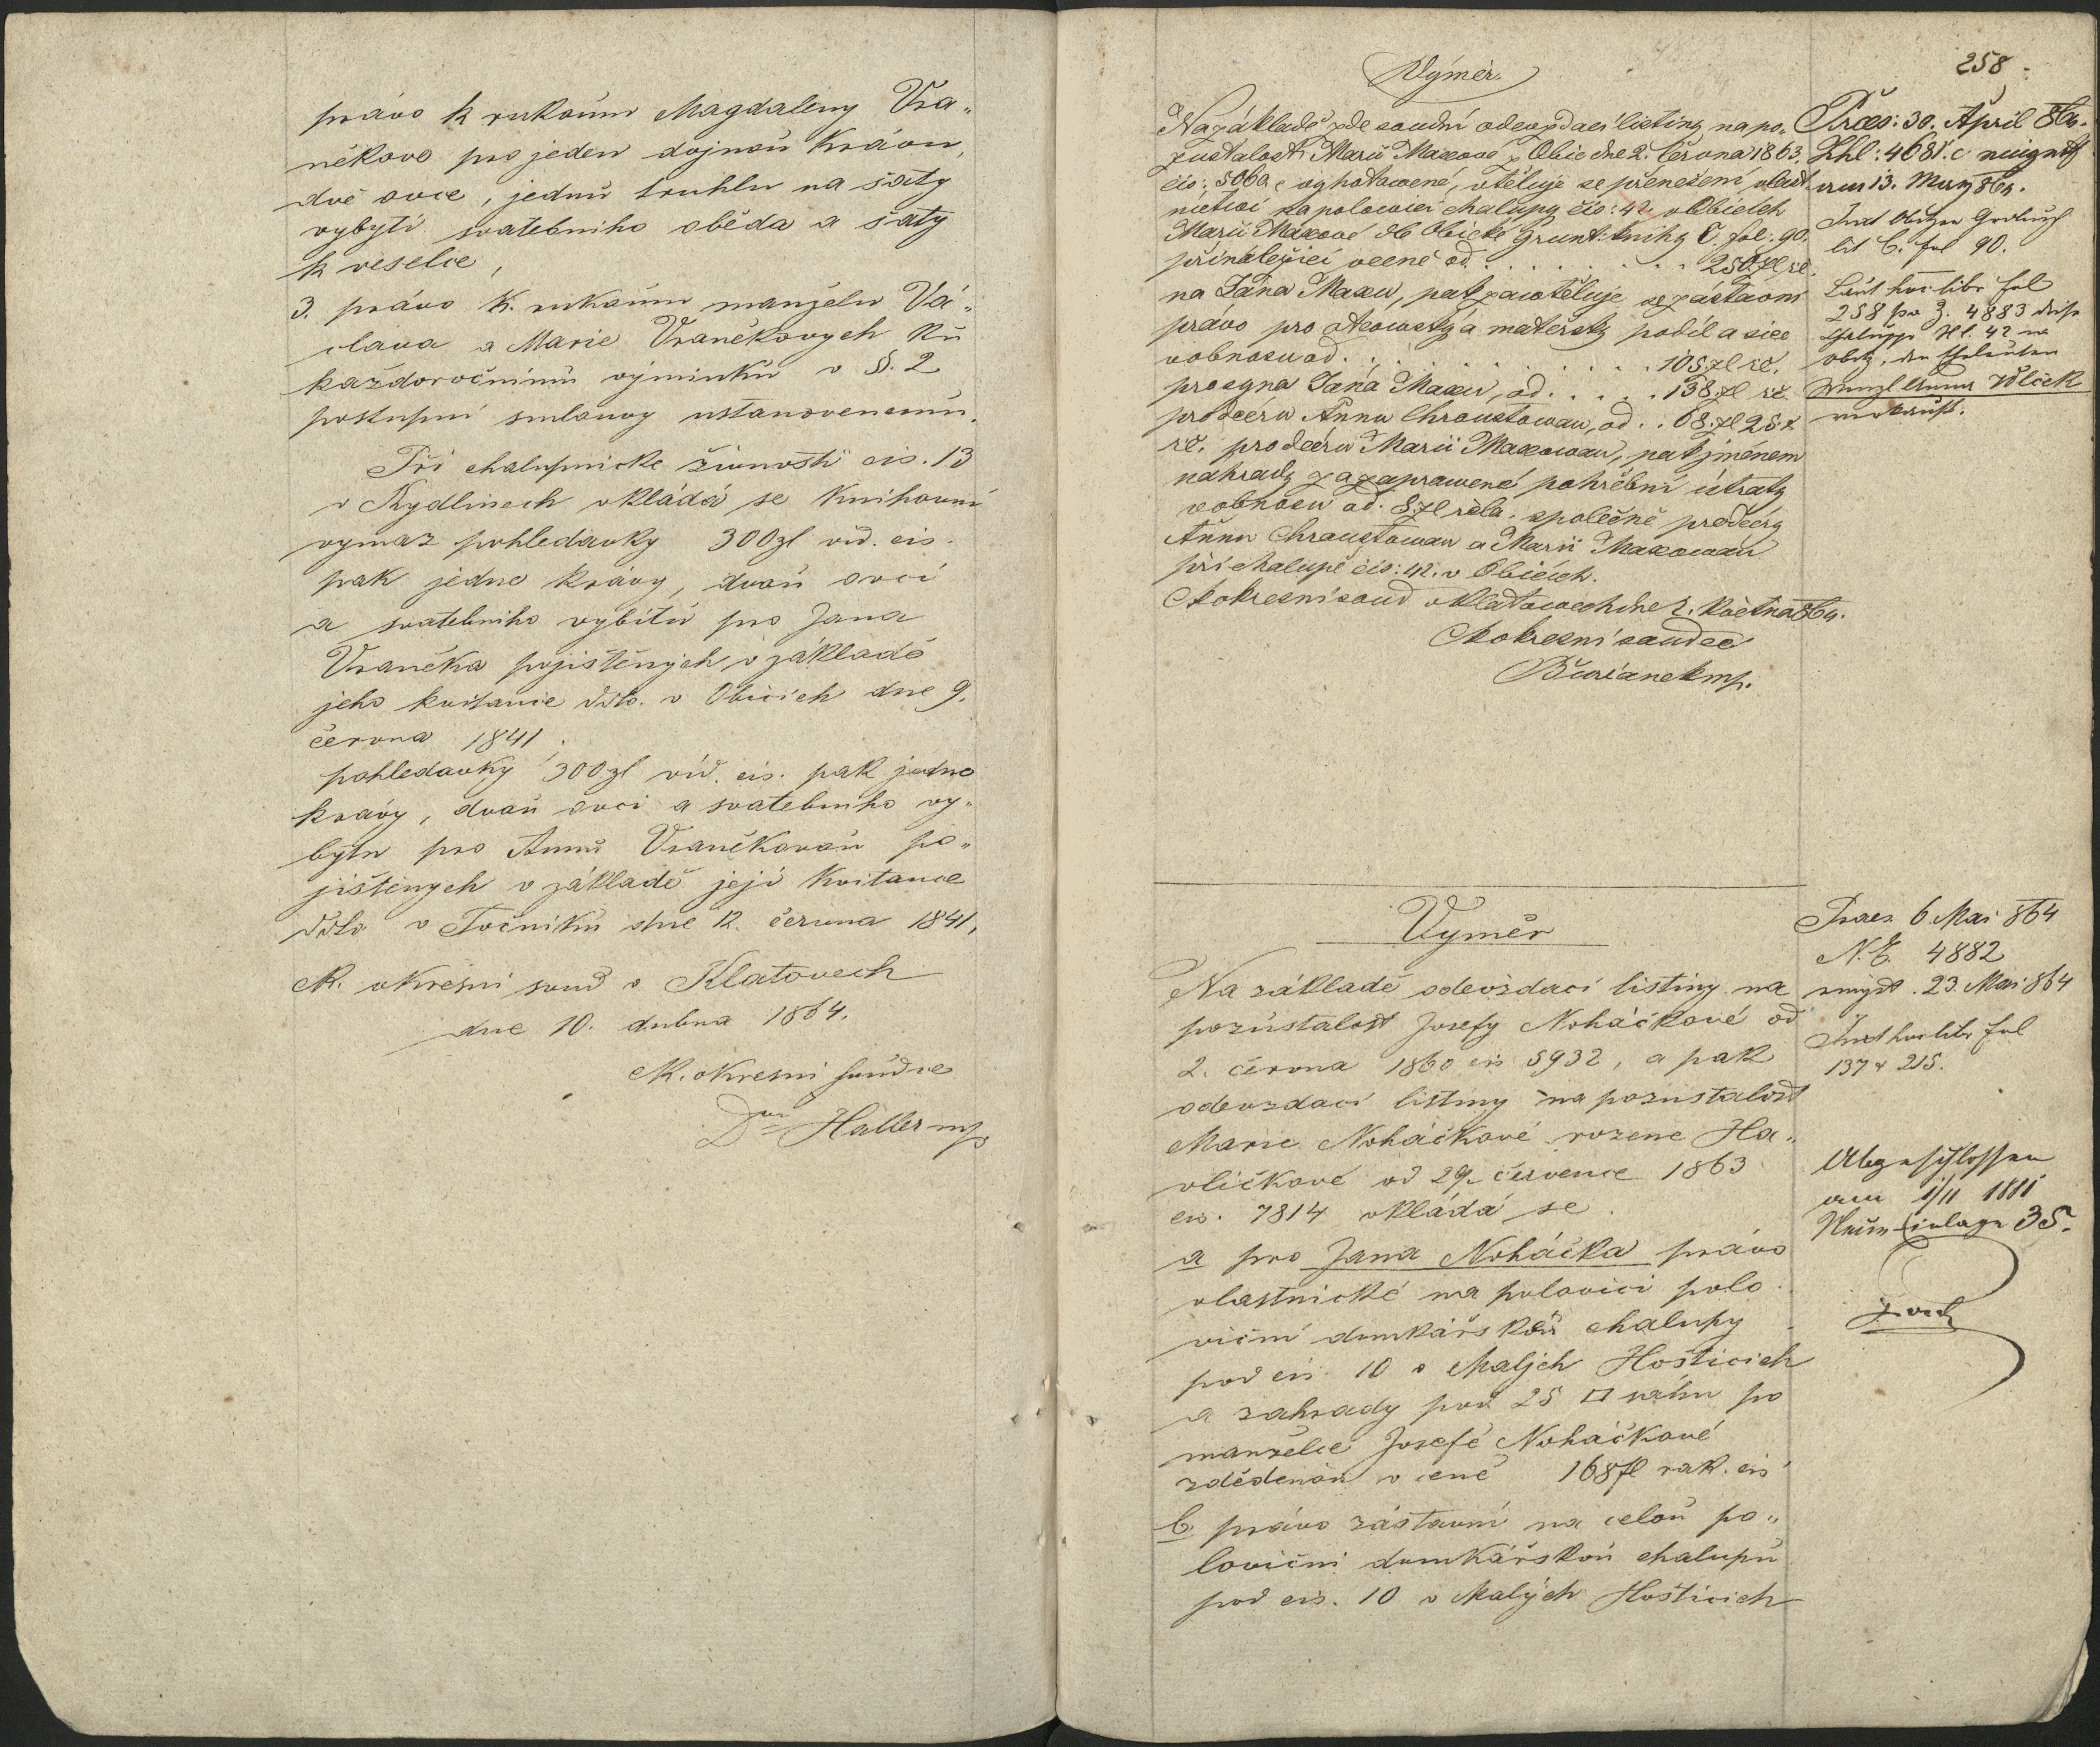 právo k rukoum Magdaleny Vra„
někovo pro jeden dojnou krávu,
dvě ovce, jednu truhlu na šaty
vybytí svatebniho oběda a šaty
k veselce,
3. právo k. rukoum manželu Vá„
clava a Marie Vraněkovych ku
každoročnímu výminku v §. 2
postupní smlouvy ustanovenemu.
Při chalupnicke živnosti čis. 13
v Kydlinech vkládá se knihovní
vymaz pohledavky 300 zl víd. čis.
pak jedne krávy, dvou ovcí
a svatebniho vybitu pro Jana
Vraněka pojištěnych, v základě
jeho kvitanie ddto. v Obicich dne 9.
června 1841.
pohledavky 300 zl víd. čis. pak jedne
krávy, dvou ovci a svatebniho vy„
bytu pro Annu Vraněkovou po„
jištěnych v základě její kvitance
ddto v Točniku dne 12. června 1841.
K. okresní soud v Klatovech
dne 10. dubna 1864.
K. okresni soudce
Dr Haller mp
258
Výměr.
Na základě zde soudní odevzdací listiny na po-
zustalost Marii Maxové z Obic dne 2. června 1863.
čis: 5060, vyhotovené, vtěluje se přenešení vlast-
nictví na polovici chalupy čis: 42 v Obicích
Marii Maxové dle Obicke Grunt: knihy C. fol: 90.
přináležicí ceně od . . . . . . . . 250 zl rč.
na Jána Maxu, pak zavtěluje se zástavní
právo pro otcowský a mateřský podíl a sice
v obnosu od . . . . . . . . . 105 zl rč.
pro syna Jana Maxu, od . . . . . 138 zl rč
pro dceru Annu Chraustowau, od . . 68 zl 25 x
rč. pro dceru Marii Maxowau, pak jménem
nahrady za zaprawené pohřební útraty
v obnosu od 8 zl společně pro dcery
Annu Chraustowau a Marii Maxowau
při chalupě čis: 42. v Obicích.
K okresní soud v Klatowech dne 2. Května 864.
K okresní saudce
Burianek mp.
Præs: 30. April 864.
Zhl: 4681.c
am 13.
lit C. fol 90.
Laut hoc libr fol
258 pr Z. 4883 diese
Chaluppe N. 42 in
Obitz, den Eheleuten
Wenzl Anna Wlček
verkauft.
Výměr
Na základě odevzdací listiny na
pozůstalost Josefy Noháčkové od
2. června 1860 čis 5932, a pak
odevzdací listiny na pozustalost
Marie Noháčkové rozene Ha„
vličkové od 29. července 1863
čis. 7814 vkládá se
a pro Jana Noháčka právo
vlastnické na polovici polo
viční domkářskou chalupy
pod čis. 10 v Malých Hošticich
a zahrady pod 25 □ sáhu po
manželce Josefě Noháčkové
zděděnou v ceně 168 fl rak. čis
b. právo zástavní na celou po„
loviční domkářskou chalupu
pod čis. 10 v Malých Hošticich
Praes 6. Mai 864
N.E. 4882
23. Mai 864
Ind hoc libr fol
137 & 215.
Abgeschlossen
am 1/11 1881
Neue Einlage 35.